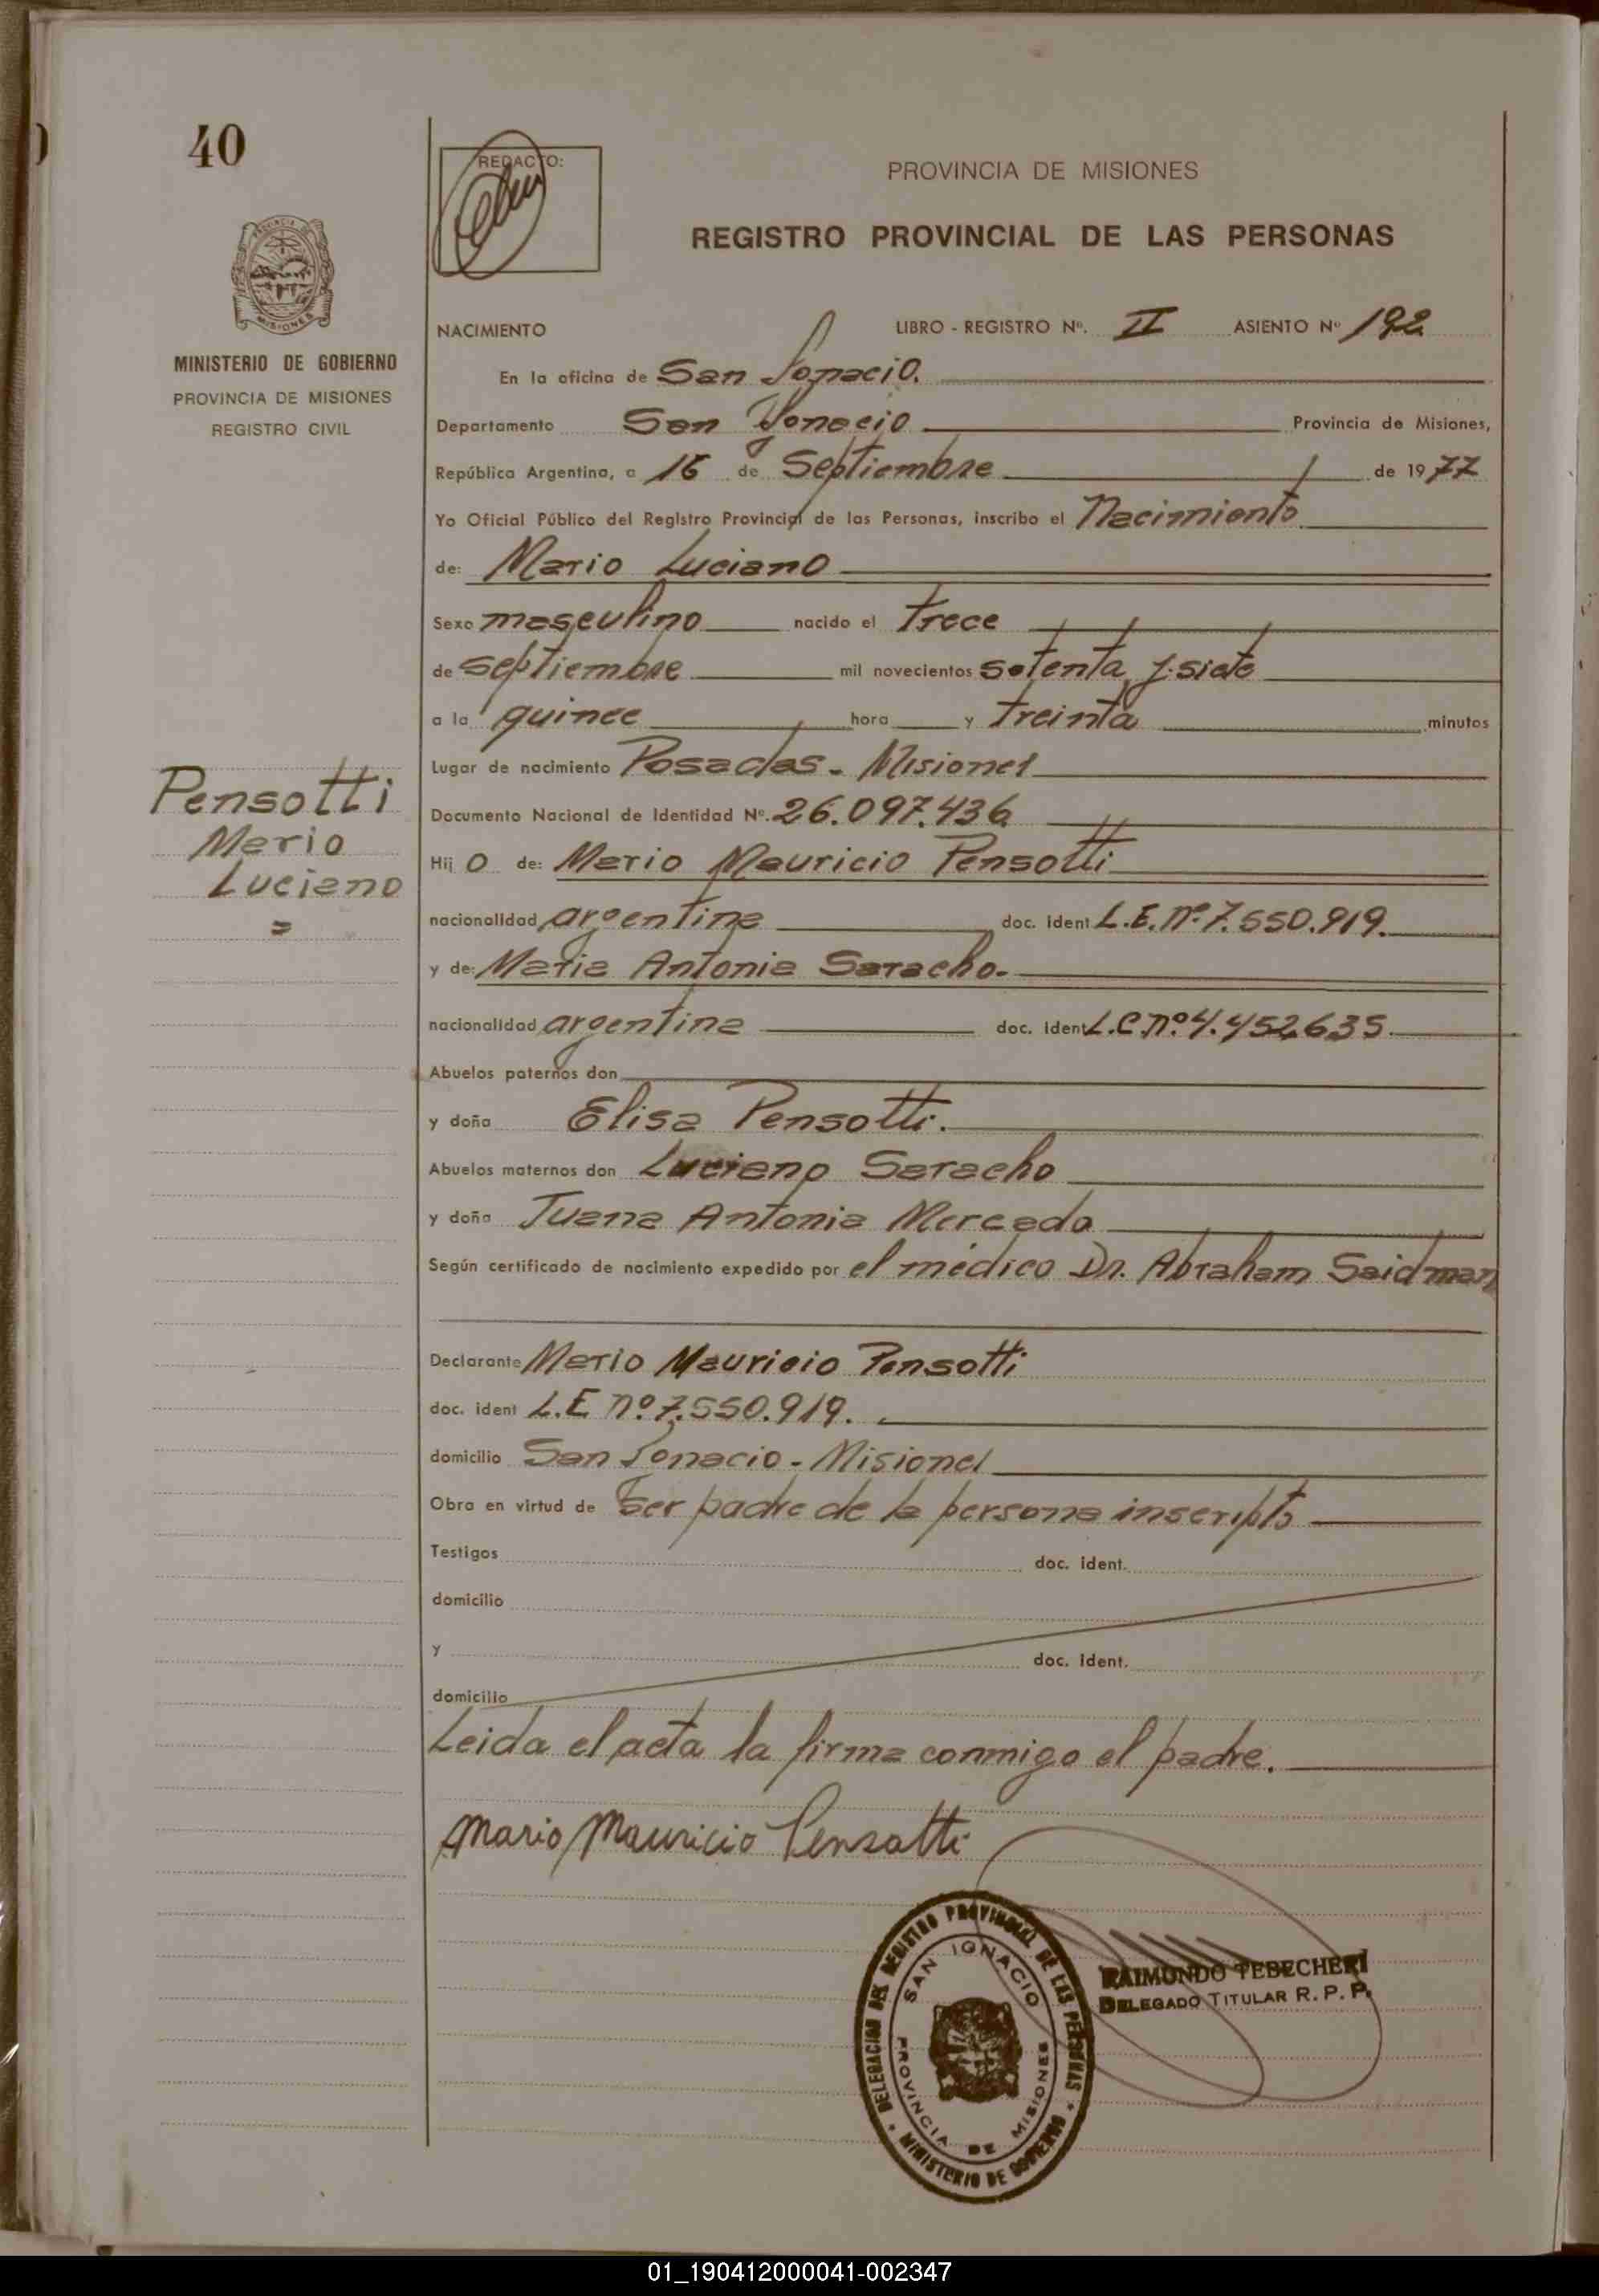 40
REDACTO:
PROVINCIA DE MISIONES
REGISTRO PROVINCIAL DE LAS PERSONAS
MINISTERIO DE GOBIERNO
PROVINCIA DE MISIONES
REGISTRO CIVIL
NACIMIENTO LIBRO - REGISTRO Nº. II ASIENTO Nº 192
En la oficina de San Ignacio.
Departamento San Ignacio Provincia de Misiones,
República Argentina, a 16 de Septiembre de 1977
Yo Oficial Público del Registro Provincial de las Personas, inscribo el Nacimiento
de: Mario Luciano
Sexo masculino nacido el Trece
de septiembre mil novecientos setenta y siete
a la quince hora y Treinta minutos
Lugar de nacimiento Posadas - Misiones
Pensotti
Mario
Luciano
=
Documento Nacional de Identidad Nº. 26.097.436
Hij o de: Mario Mauricio Pensotti
nacionalidad argentina doc. ident L.E. nº 7.550.919.
y de: Maria Antonia Saracho.
nacionalidad argentina doc. ident L.C. nº 4.452.635
Abuelos paternos don
y doña Elisa Pensotti.
Abuelos maternos don Luciano Saracho
y doña Juana Antonia Mercado
Según certificado de nacimiento expedido por el médico Dr. Abraham Saidman
Declarante Mario Mauricio Pensotti
doc. ident L.E nº 7.550.919.
domicilio San Ignacio - Misiones
Obra en virtud de ser padre de la persona inscripta
Testigos doc. ident.
domicilio
y doc. ident.
domicilio
Leida el acta la firma conmigo el padre.
Mario Mauricio Pensotti
DELEGACION DEL REGISTRO PROVINCIAL DE LAS PERSONAS
SAN IGNACIO
PROVINCIA DE MISIONES
MINISTERIO DE GOBIERNO
RAIMUNDO TEBECHERI
DELEGADO TITULAR R. P. P.
01_190412000041-002347